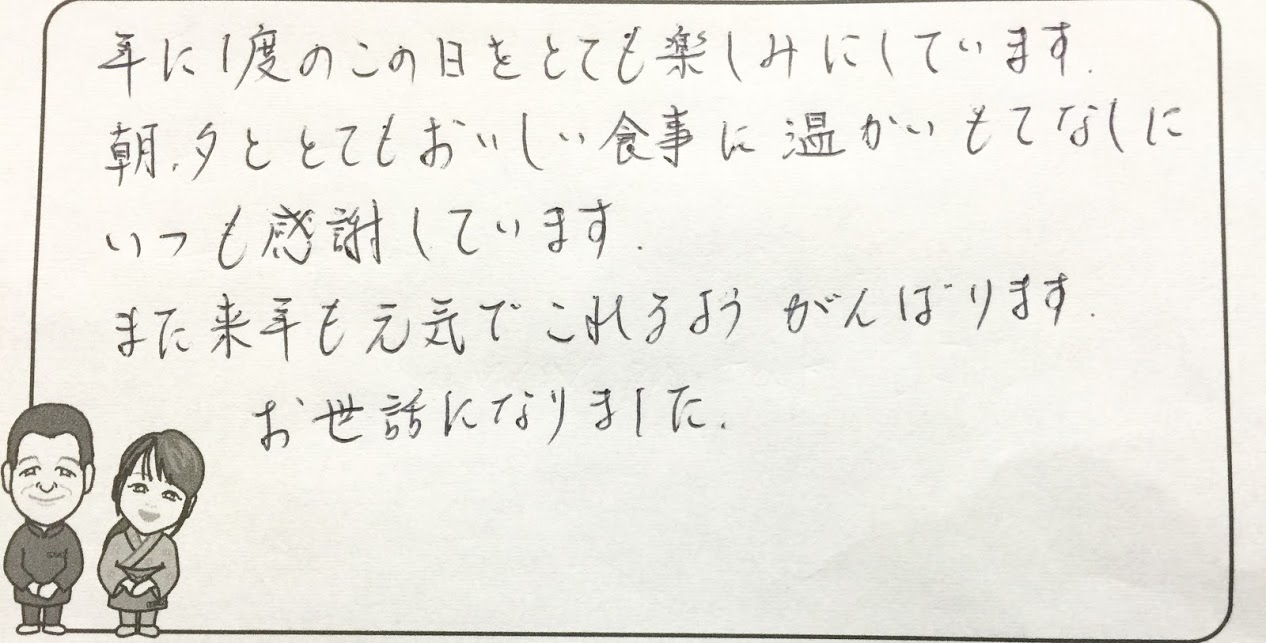 年に1度のこの日をとても楽しみにしています.
朝.夕ととてもおいしい食事に温かいもてなしに
いつも感謝しています.
また来年も元気でこれるようがんばります.
お世話になりました.